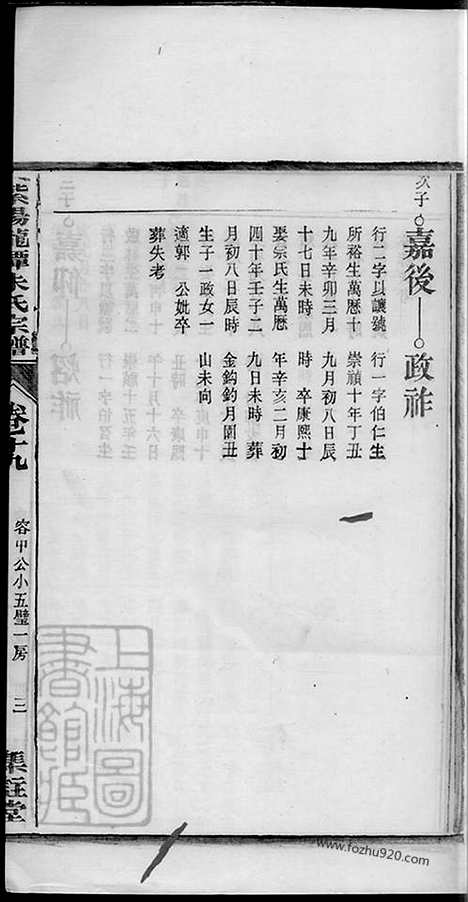 次子○嘉後—○政祚
行二字以讓號
所裕生萬歷十
九年辛卯三月
十七日未時
娶宗氏生萬歷
四十年壬子二
月初八日辰時
生子一政女一
適郭 公妣卒
葬失考
行一字伯仁生
崇禎十年丁丑
九月初八日辰
時 卒康熙十
年辛亥二月初
九日未時 葬
金鈎釣月園丑
山未向
紫陽龍譚朱氏宗譜
卷十九
容甲公小五璧一房
三
堂
上海圖
書館藏
www.fozhu920.com